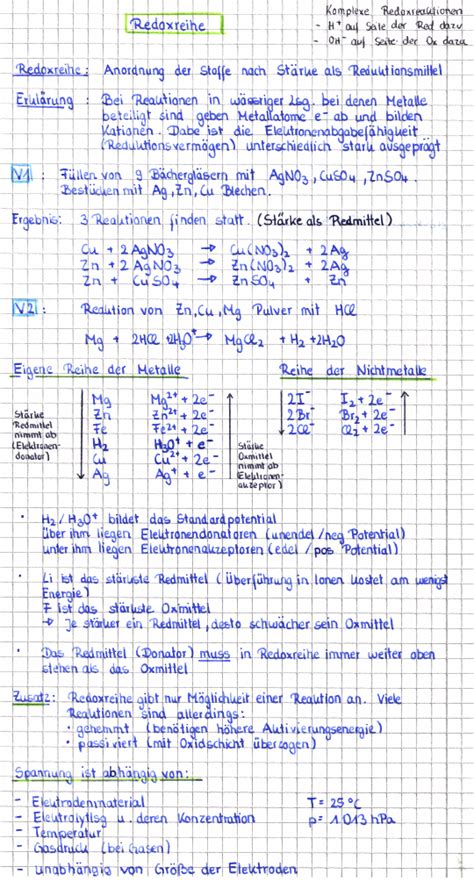 Komplexe Redoxreaktionen
- H⁺ auf Seite der Red dazu
- OH⁻ auf Seite der Ox dazu
Redoxreihe
Redoxreihe: Anordnung der Stoffe nach Stärke als Reduktionsmittel
Erklärung: Bei Reaktionen in wässriger Lsg. bei denen Metalle
beteiligt sind geben Metallatome e⁻ ab und bilden
Kationen. Dabe ist die Elektronenabgabefähigkeit
(Reduktionsvermögen) unterschiedlich stark ausgeprägt
V1: Füllen von 9 Bechergläsern mit AgNO₃, CuSO₄, ZnSO₄.
Bestücken mit Ag, Zn, Cu Blechen.
Ergebnis: 3 Reaktionen finden statt. (Stärke als Redmittel)
Cu + 2AgNO₃ → Cu(NO₃)₂ + 2Ag
Zn + 2AgNO₃ → Zn(NO₃)₂ + 2Ag
Zn + CuSO₄ → ZnSO₄ + Zn
V2: Reaktion von Zn, Cu, Mg Pulver mit HCl
Mg + 2HCl 2H₃O⁺ → MgCl₂ + H₂ + 2H₂O
Eigene Reihe der Metalle
Stärke
Redmittel
nimmt ab
(Elektronen-
donator)
Mg Mg²⁺ + 2e⁻
Zn Zn²⁺ + 2e⁻
Fe Fe²⁺ + 2e⁻
H₂ H₃O⁺ + e⁻
Cu Cu²⁺ + 2e⁻
Ag Ag⁺ + e⁻
Stärke
Oxmittel
nimmt ab
(Elektronen-
akzeptor)
Reihe der Nichtmetalle
2I⁻ I₂ + 2e⁻
2Br⁻ Br₂ + 2e⁻
2Cl⁻ Cl₂ + 2e⁻
• H₂/H₃O⁺ bildet das Standardpotential
über ihm liegen Elektronendonatoren (unendel/neg Potential)
unter ihm liegen Elektronenakzeptoren (edel/pos Potential)
• Li ist das stärkste Redmittel (Überführung in Ionen kostet am wenigst
Energie)
F ist das stärkste Oxmittel
→ Je stärker ein Redmittel, desto schwächer sein Oxmittel
• Das Redmittel (Donator) muss in Redoxreihe immer weiter oben
stehen als das Oxmittel
Zusatz: Redoxreihe gibt nur Möglichkeit einer Reaktion an. Viele
Reaktionen sind allerdings:
• gehemmt (benötigen höhere Aktivierungsenergie)
• passiviert (mit Oxidschicht überzogen)
Spannung ist abhängig von:
- Elektrodenmaterial T = 25°C
- Elektrolytlsg u. deren Konzentration p = 1013 hPa
- Temperatur
- Gasdruck (bei Gasen)
- unabhängig von Größe der Elektroden